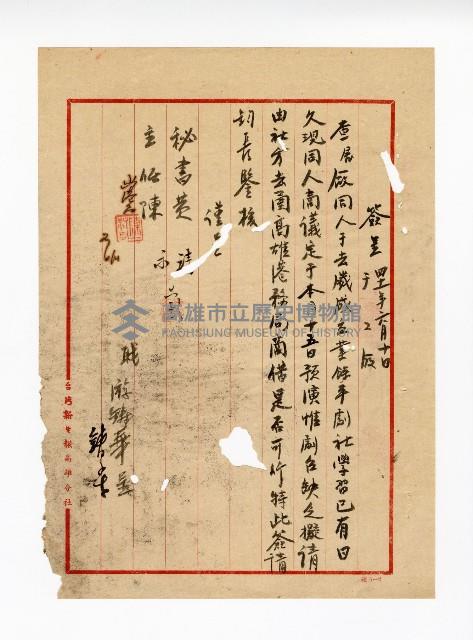 簽呈 于工廠
查屬廠同人于去歲成立業餘平劇社學習已有日
久現同人商議定于本月十五日預演惟劇台缺乏擬請
由社方去函高雄港務局商借是否可行特此簽請
社長鑒核
謹呈
秘書黃
主任陳
職 游
台灣新生報高雄分社
高雄市立歷史博物館
KAOHSIUNG MUSEUM OF HISTORY